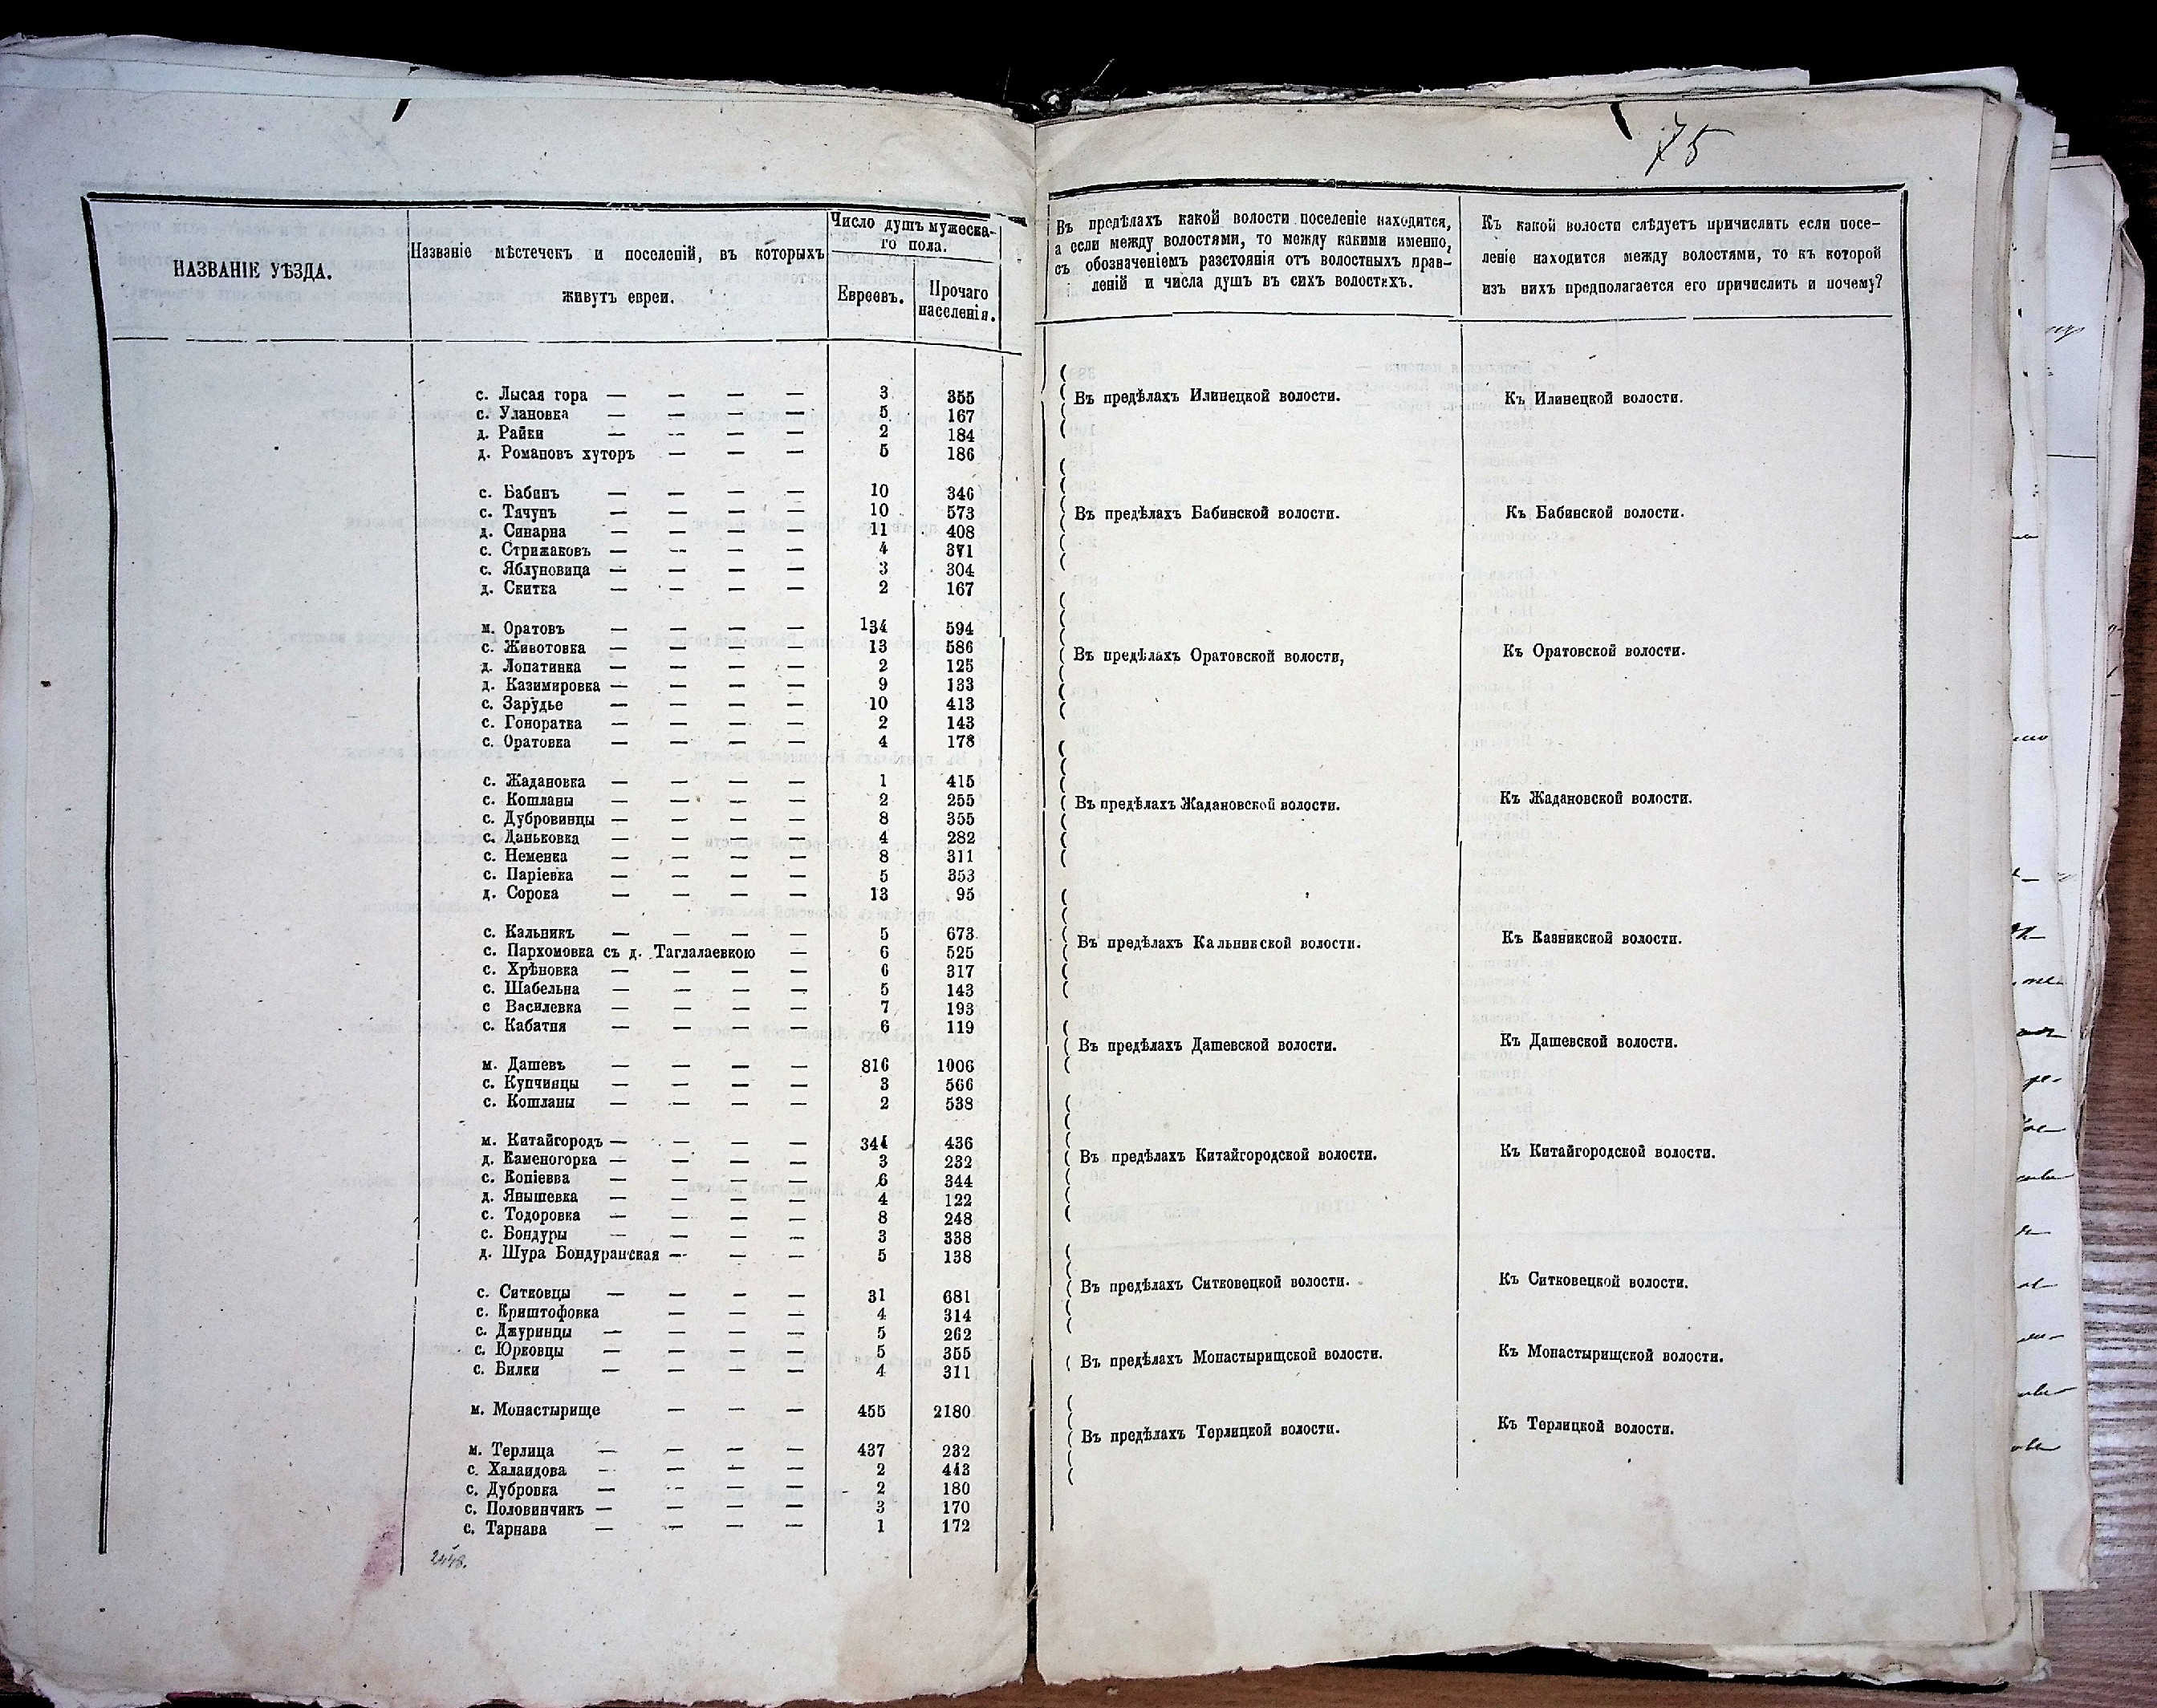 75
НАЗВАНІЕ УѢЗДА.
Названіе мѣстечекъ и поселеній, въ которыхъ
живутъ евреи.
Число душъ мужеска-
го пола.
Евреевъ.
Прочаго
населенія.
Въ предѣлахъ какой волости поселеніе находится,
а если между волостями, то между какими именно,
съ обозначеніемъ разстоянія отъ волостныхъ прав-
леній и числа душъ въ сихъ волостяхъ.
Къ какой волости слѣдуетъ причислить если посе-
леніе находится между волостями, то къ которой
изъ нихъ предполагается его причислить и почему?
с. Лысая гора — — — — 3 355
с. Улановка — — — — 5 167
д. Райки — — — — 2 184
д. Романовъ хуторъ — — — 5 186
Въ предѣлахъ Илинецкой волости. Къ Илинецкой волости.
с. Бабинъ — — — — 10 346
с. Тячунъ — — — — 10 573
д. Синарна — — — — 11 408
с. Стрижаковъ — — — — 4 371
с. Яблуновица — — — — 3 304
д. Скитка — — — — 2 167
Въ предѣлахъ Бабинской волости. Къ Бабинской волости.
м. Оратовъ — — — — 134 594
с. Животовка — — — — 13 586
д. Лопатинка — — — — 2 125
д. Казимировка — — — — 9 133
с. Зарудье — — — — 10 413
с. Гоноратка — — — — 2 143
с. Оратовка — — — — 4 178
Въ предѣлахъ Оратовской волости, Къ Оратовской волости.
с. Жадановка — — — — 1 415
с. Кошланы — — — — 2 255
с. Дубровинцы — — — — 8 355
с. Даньковка — — — — 4 282
с. Неменка — — — — 8 311
с. Паріевка — — — — 5 353
д. Сорока — — — — 13 95
Въ предѣлахъ Жадановской волости. Къ Жадановской волости.
с. Кальникъ — — — — 5 673
с. Пархомовка съ д. Таглалаевкою — 6 525
с. Хрѣновка — — — — 6 317
с. Шабельна — — — — 5 143
с Василевка — — — — 7 193
с. Кабатня — — — — 6 119
Въ предѣлахъ Кальникской волости. Къ Казникской волости.
м. Дашевъ — — — — 816 1006
с. Купчинцы — — — — 3 566
с. Кошланы — — — — 2 538
Въ предѣлахъ Дашевской волости. Къ Дашевской волости.
м. Китайгородъ — — — — 344 436
д. Каменогорка — — — — 3 232
с. Копіевва — — — — 6 344
д. Янышевка — — — — 4 122
с. Тодоровка — — — — 8 248
с. Бондуры — — — — 3 338
д. Шура Бондуранская — — — 5 138
Въ предѣлахъ Китайгородской волости. Къ Китайгородской волости.
с. Ситковцы — — — — 31 681
с. Криштофовка — — — 4 314
с. Джуринцы — — — — 5 262
с. Юрковцы — — — — 5 355
с. Билки — — — — 4 311
Въ предѣлахъ Ситковецкой волости. Къ Ситковецкой волости.
м. Монастырище — — — 455 2180
Въ предѣлахъ Монастырищской волости. Къ Монастырищской волости.
м. Терлица — — — — 437 232
с. Халаидова — — — — 2 443
с. Дубровка — — — — 2 180
с. Половинчикъ — — — — 3 170
с. Тарнава — — — — 1 172
Въ предѣлахъ Терлицкой волости. Къ Терлицкой волости.
2448.